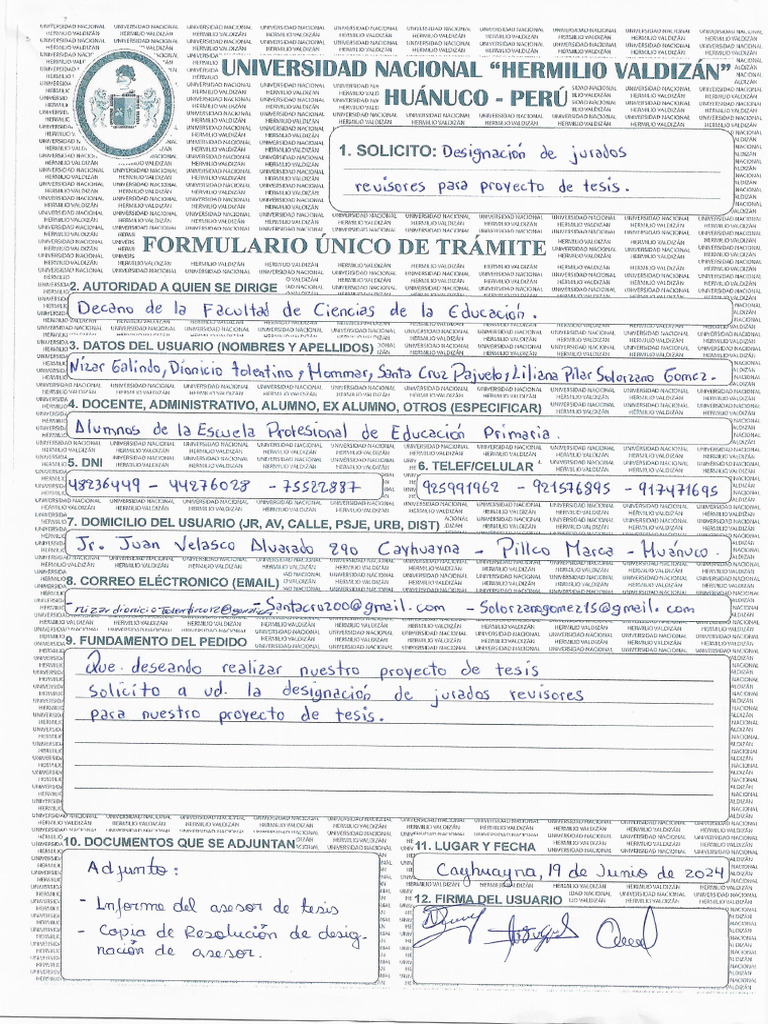 UNIVERSIDAD NACIONAL “HERMILIO VALDIZÁN”
HUÁNUCO - PERÚ
1. SOLICITO: Designación de jurados
revisores para proyecto de tesis.
FORMULARIO ÚNICO DE TRÁMITE
2. AUTORIDAD A QUIEN SE DIRIGE
Decano de la Facultad de Ciencias de la Educación.
3. DATOS DEL USUARIO (NOMBRES Y APELLIDOS)
Nizar Galindo, Dionicio Tolentino, Hommar, Santa Cruz Pajuelo, Liliana Pilar Solorzano Gomez.
4. DOCENTE, ADMINISTRATIVO, ALUMNO, EX ALUMNO, OTROS (ESPECIFICAR)
Alumnos de la Escuela Profesional de Educación Primaria.
5. DNI
48236449 - 44276028 - 75522887
6. TELEF/CELULAR
925991962 - 921576895 - 917471695
7. DOMICILIO DEL USUARIO (JR, AV, CALLE, PSJE, URB, DIST)
Jr. Juan Velasco Alvarado 290 Cayhuayna - Pillco Marca - Huánuco.
8. CORREO ELÉCTRONICO (EMAIL)
Santacruz00@gmail.com - Solorzanogomez15@gmail.com
9. FUNDAMENTO DEL PEDIDO
Que deseando realizar nuestro proyecto de tesis
solicito a ud. la designación de jurados revisores
para nuestro proyecto de tesis.
10. DOCUMENTOS QUE SE ADJUNTAN
Adjunto:
- Informe del asesor de tesis
- Copia de Resolución de desig-
nación de asesor.
11. LUGAR Y FECHA
Cayhuayna, 19 de Junio de 2024
12. FIRMA DEL USUARIO